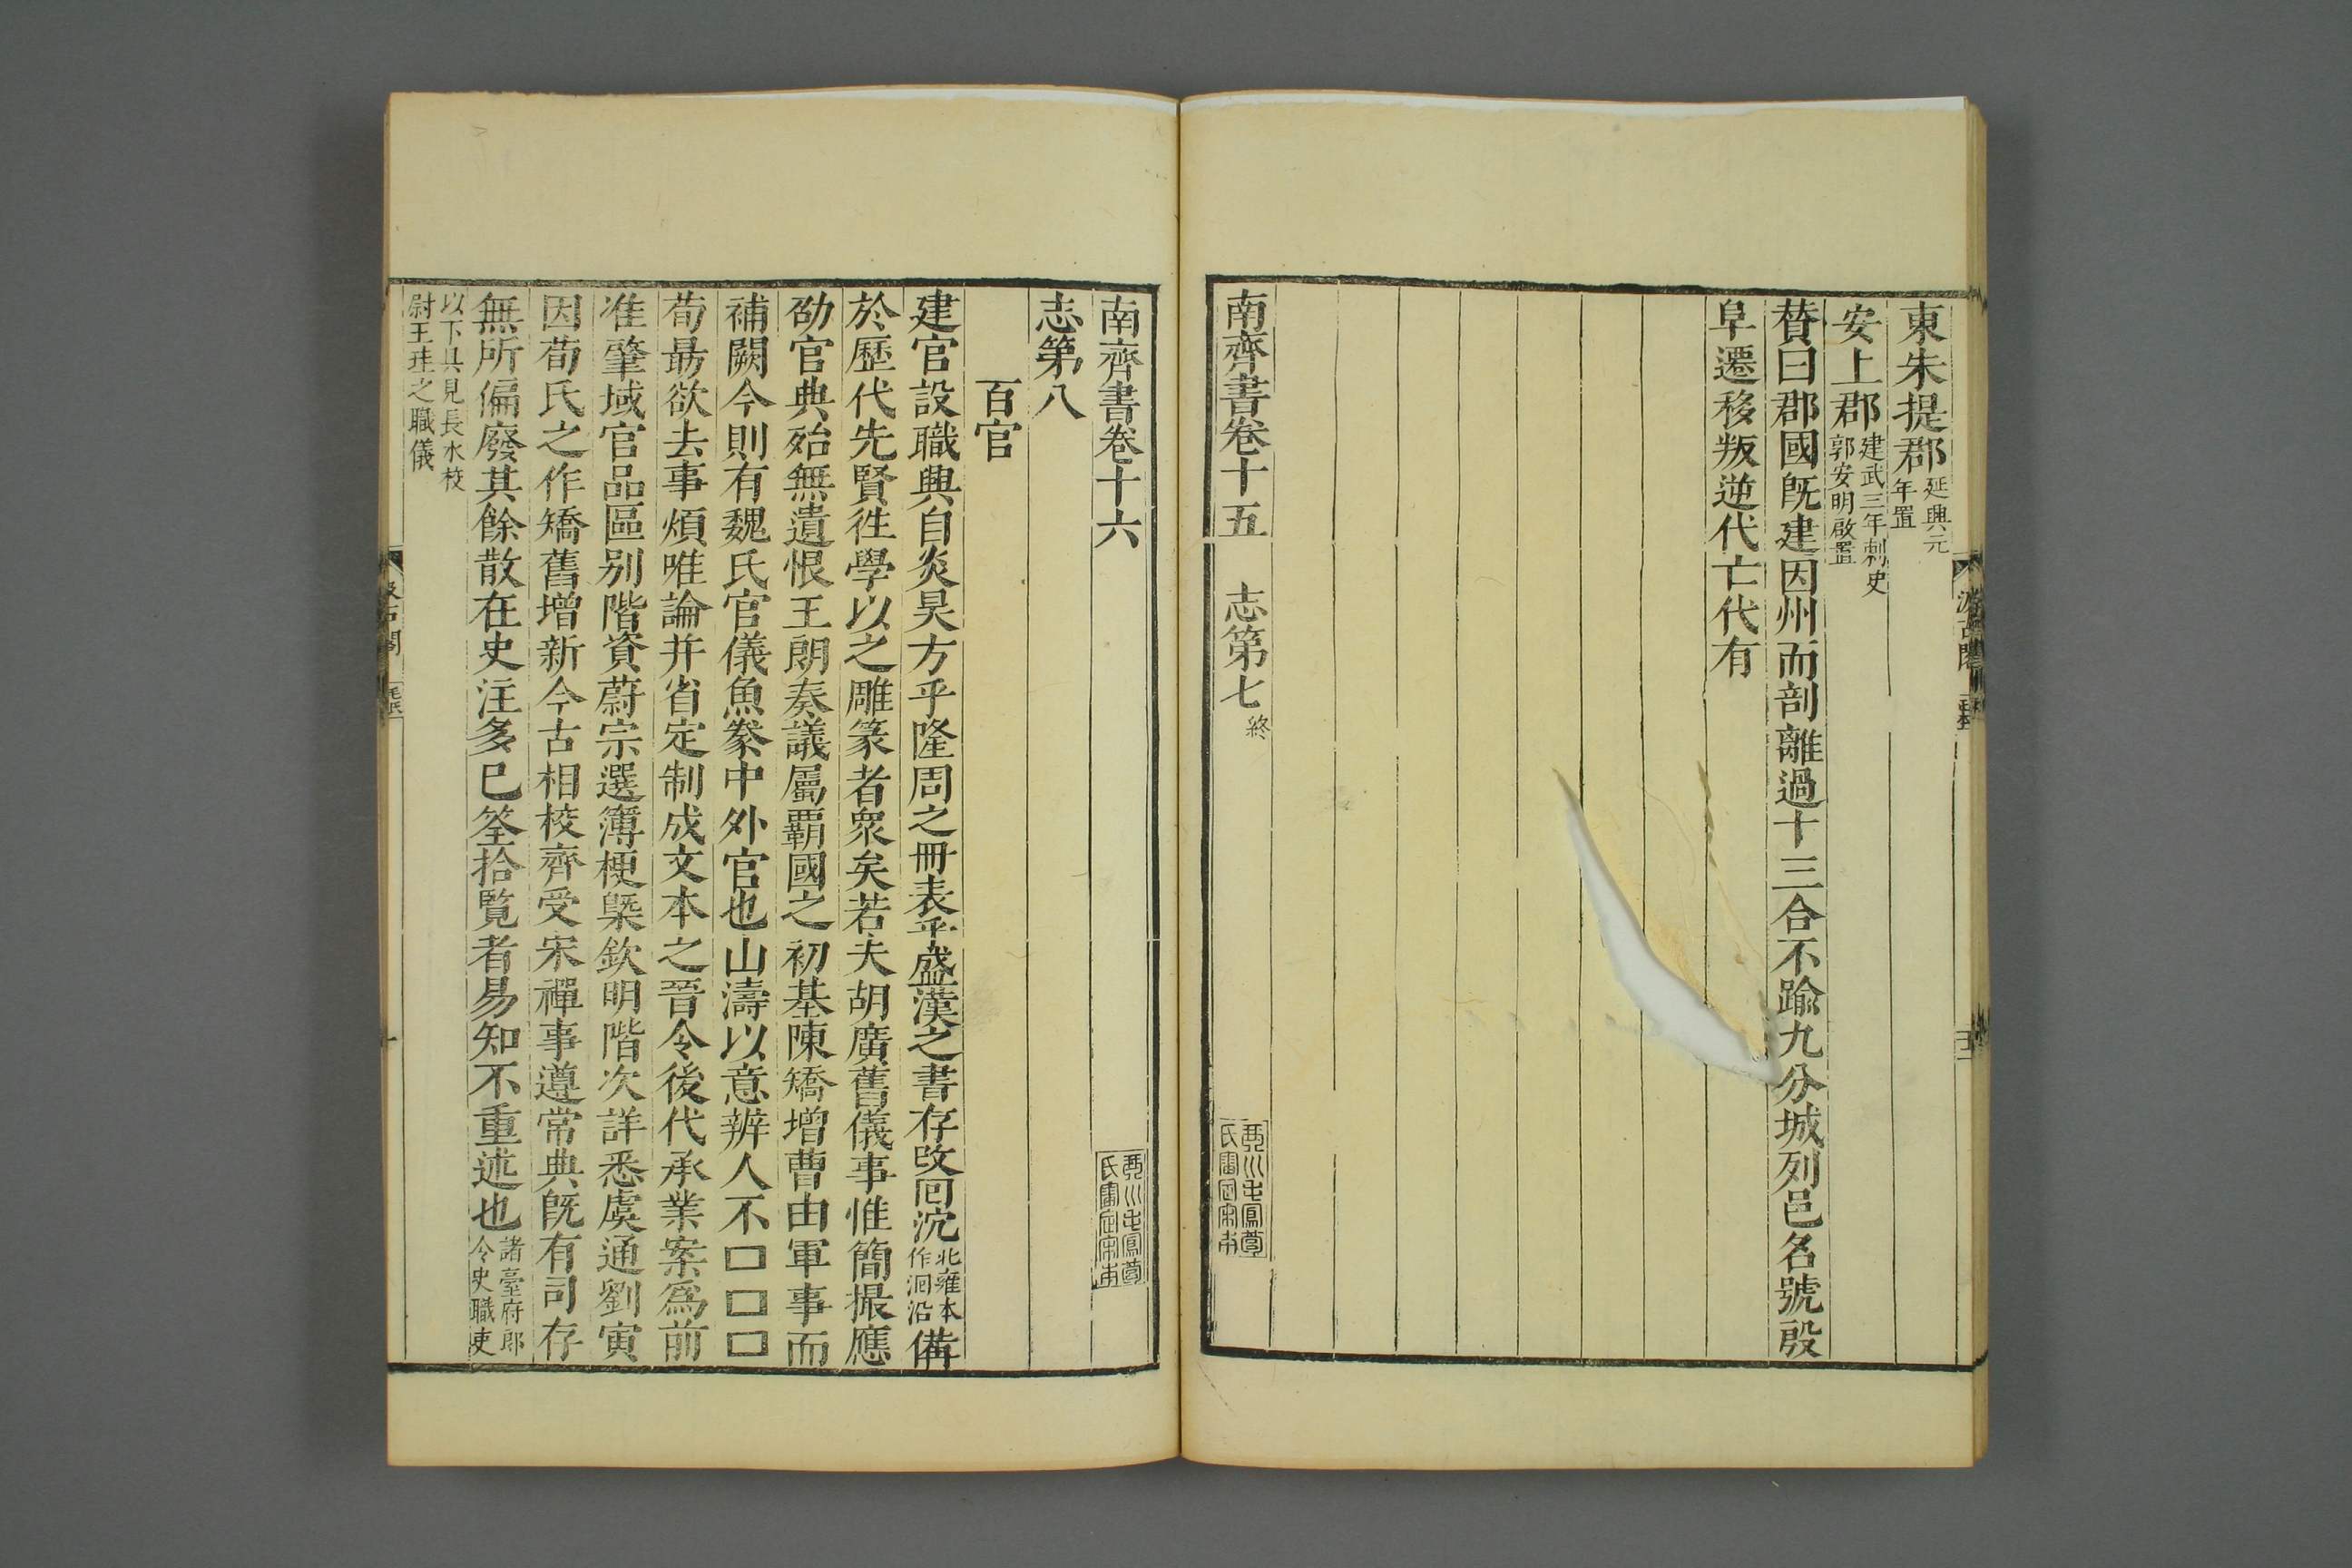 東朱提郡延興元年置
安上郡建武三年刺史郭安明啟置
賛曰郡國旣建因州而剖離過十三合不踰九分城列邑名號殷
阜遷移叛逆代亡代有
南齊書卷十五 志第七終
南齊書卷十六
志第八
百官
建官設職興自炎昊方乎隆周之冊表乎盛漢之書存改回沈北雍本作洄沿備
於歷代先賢徃學以之雕篆者衆矣若夫胡廣舊儀事惟簡撮應
劭官典殆無遺恨王朗奏議屬覇國之初基陳矯增曹由軍事而
補闕今則有魏氏官儀魚豢中外官也山濤以意辨人不□□□
荀勗欲去事煩唯論并省定制成文本之晉令後代承業案爲前
准肇域官品區别階資蔚宗選簿梗槩欽明階次詳悉虞通劉寅
因荀氏之作矯舊增新今古相校齊受宋禪事遵常典旣有司存
無所偏廢其餘散在史注多已筌拾覧者易知不重述也諸臺府郎令史職吏
以下具見長水校尉王珪之職儀